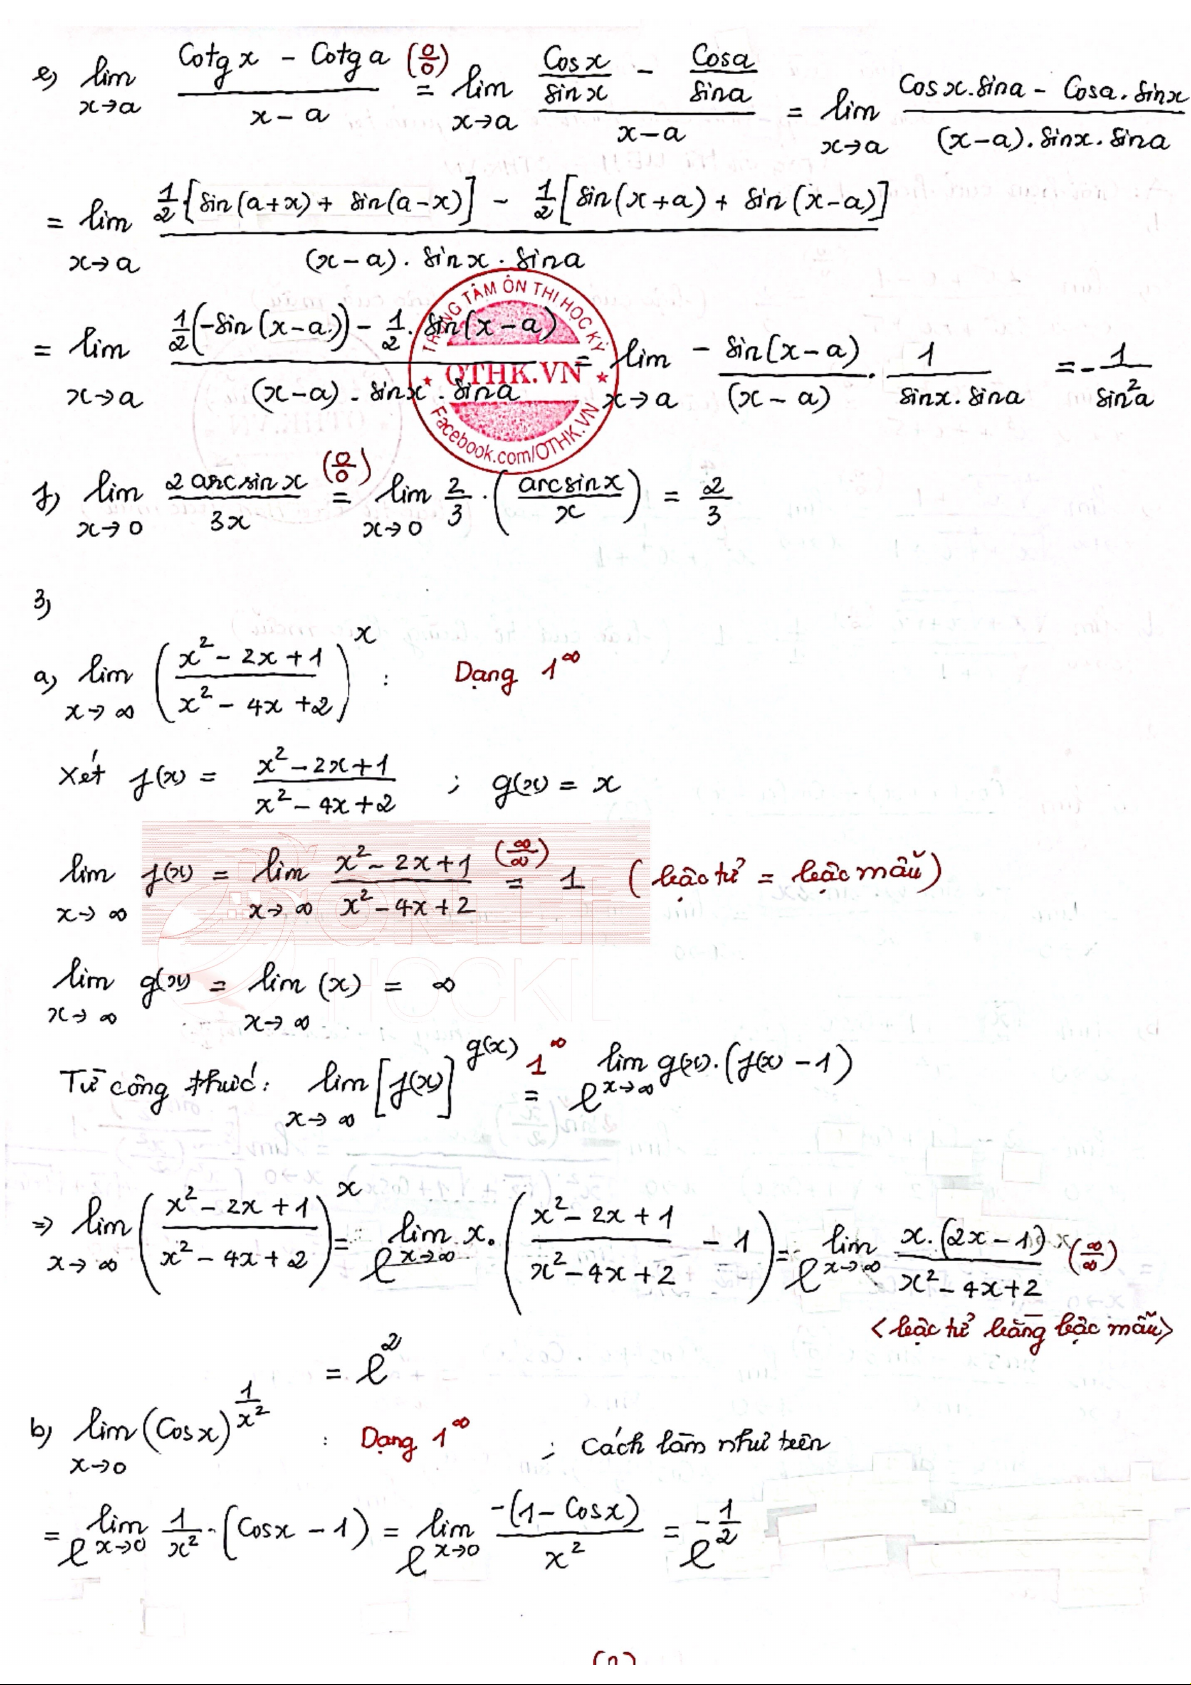 e) lim_{x→a} (Cotg x − Cotg a)/(x − a) =^{(0/0)} lim_{x→a} (Cos x/sin x − Cos a/sin a)/(x − a) = lim_{x→a} (Cos x.sin a − Cos a.sin x)/((x−a).sin x.sin a)
= lim_{x→a} (1/2[sin(a+x) + sin(a−x)] − 1/2[sin(x+a) + sin(x−a)])/((x−a).sin x.sin a)
= lim_{x→a} (1/2(−sin(x−a)) − 1/2.sin(x−a))/((x−a).sin x.sin a) = lim_{x→a} −sin(x−a)/(x−a) . 1/(sin x.sin a) = −1/sin²a
TRUNG TÂM ÔN THI HỌC KỲ
★ OTHK.VN ★
Facebook.com/OTHK.VN
f) lim_{x→0} 2 arcsin x/3x =^{(0/0)} lim_{x→0} 2/3 . (arcsin x/x) = 2/3
3)
a) lim_{x→∞} ((x² − 2x + 1)/(x² − 4x + 2))^x : Dạng 1^∞
Xét f(x) = (x² − 2x + 1)/(x² − 4x + 2) ; g(x) = x
lim_{x→∞} f(x) = lim_{x→∞} (x² − 2x + 1)/(x² − 4x + 2) =^{(∞/∞)} 1 (bậc tử = bậc mẫu)
lim_{x→∞} g(x) = lim_{x→∞} (x) = ∞
Từ công thức: lim_{x→∞} [f(x)]^{g(x)} =^{1^∞} e^{lim_{x→∞} g(x).(f(x) − 1)}
⇒ lim_{x→∞} ((x² − 2x + 1)/(x² − 4x + 2))^x = e^{lim_{x→∞} x.((x² − 2x + 1)/(x² − 4x + 2) − 1)} = e^{lim_{x→∞} x.(2x − 1)/(x² − 4x + 2)} (∞/∞)
<bậc tử bằng bậc mẫu>
= e²
b) lim_{x→0} (Cos x)^{1/x²} : Dạng 1^∞ ; Cách làm như trên
= e^{lim_{x→0} 1/x².(Cos x − 1)} = e^{lim_{x→0} −(1 − Cos x)/x²} = e^{−1/2}